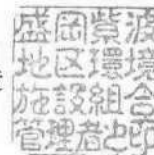 盛岡紫波
地区環境
施設組合
管理者之印